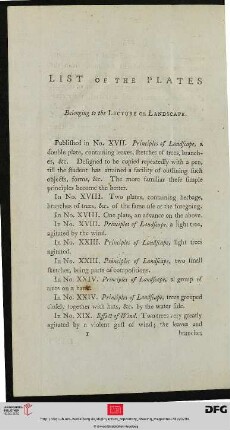 LIST OF THE PLATES
Belonging to the LECTURE ON LANDSCAPE.
Published in No. XVII. Principles of Landscape, a
double plate, containing leaves, sketches of trees, branch-
es, &c. Designed to be copied repeatedly with a pen,
till the student has attained a facility of outlining such
objects, forms, &c. The more familiar these simple
principles become the better.
In No. XVIII. Two plates, containing herbage,
branches of trees, &c. of the same use as the foregoing.
In No. XVIII. One plate, an advance on the above.
In No. XVIII. Principles of Landscape, a light tree,
agitated by the wind.
In No. XXIII. Principles of Landscape, light trees
agitated.
In No. XXIII. Principles of Landscape, two small
sketches, being parts of compositions.
In No. XXIV. Principles of Landscape, a group of
trees on a bank.
In No. XXIV. Principles of Landscape, trees grouped
closely, together with huts, &c. by the water side.
In No. XIX. Effect of Wind. Two trees very greatly
agitated by a violent gust of wind; the leaves and
branches,
DFG